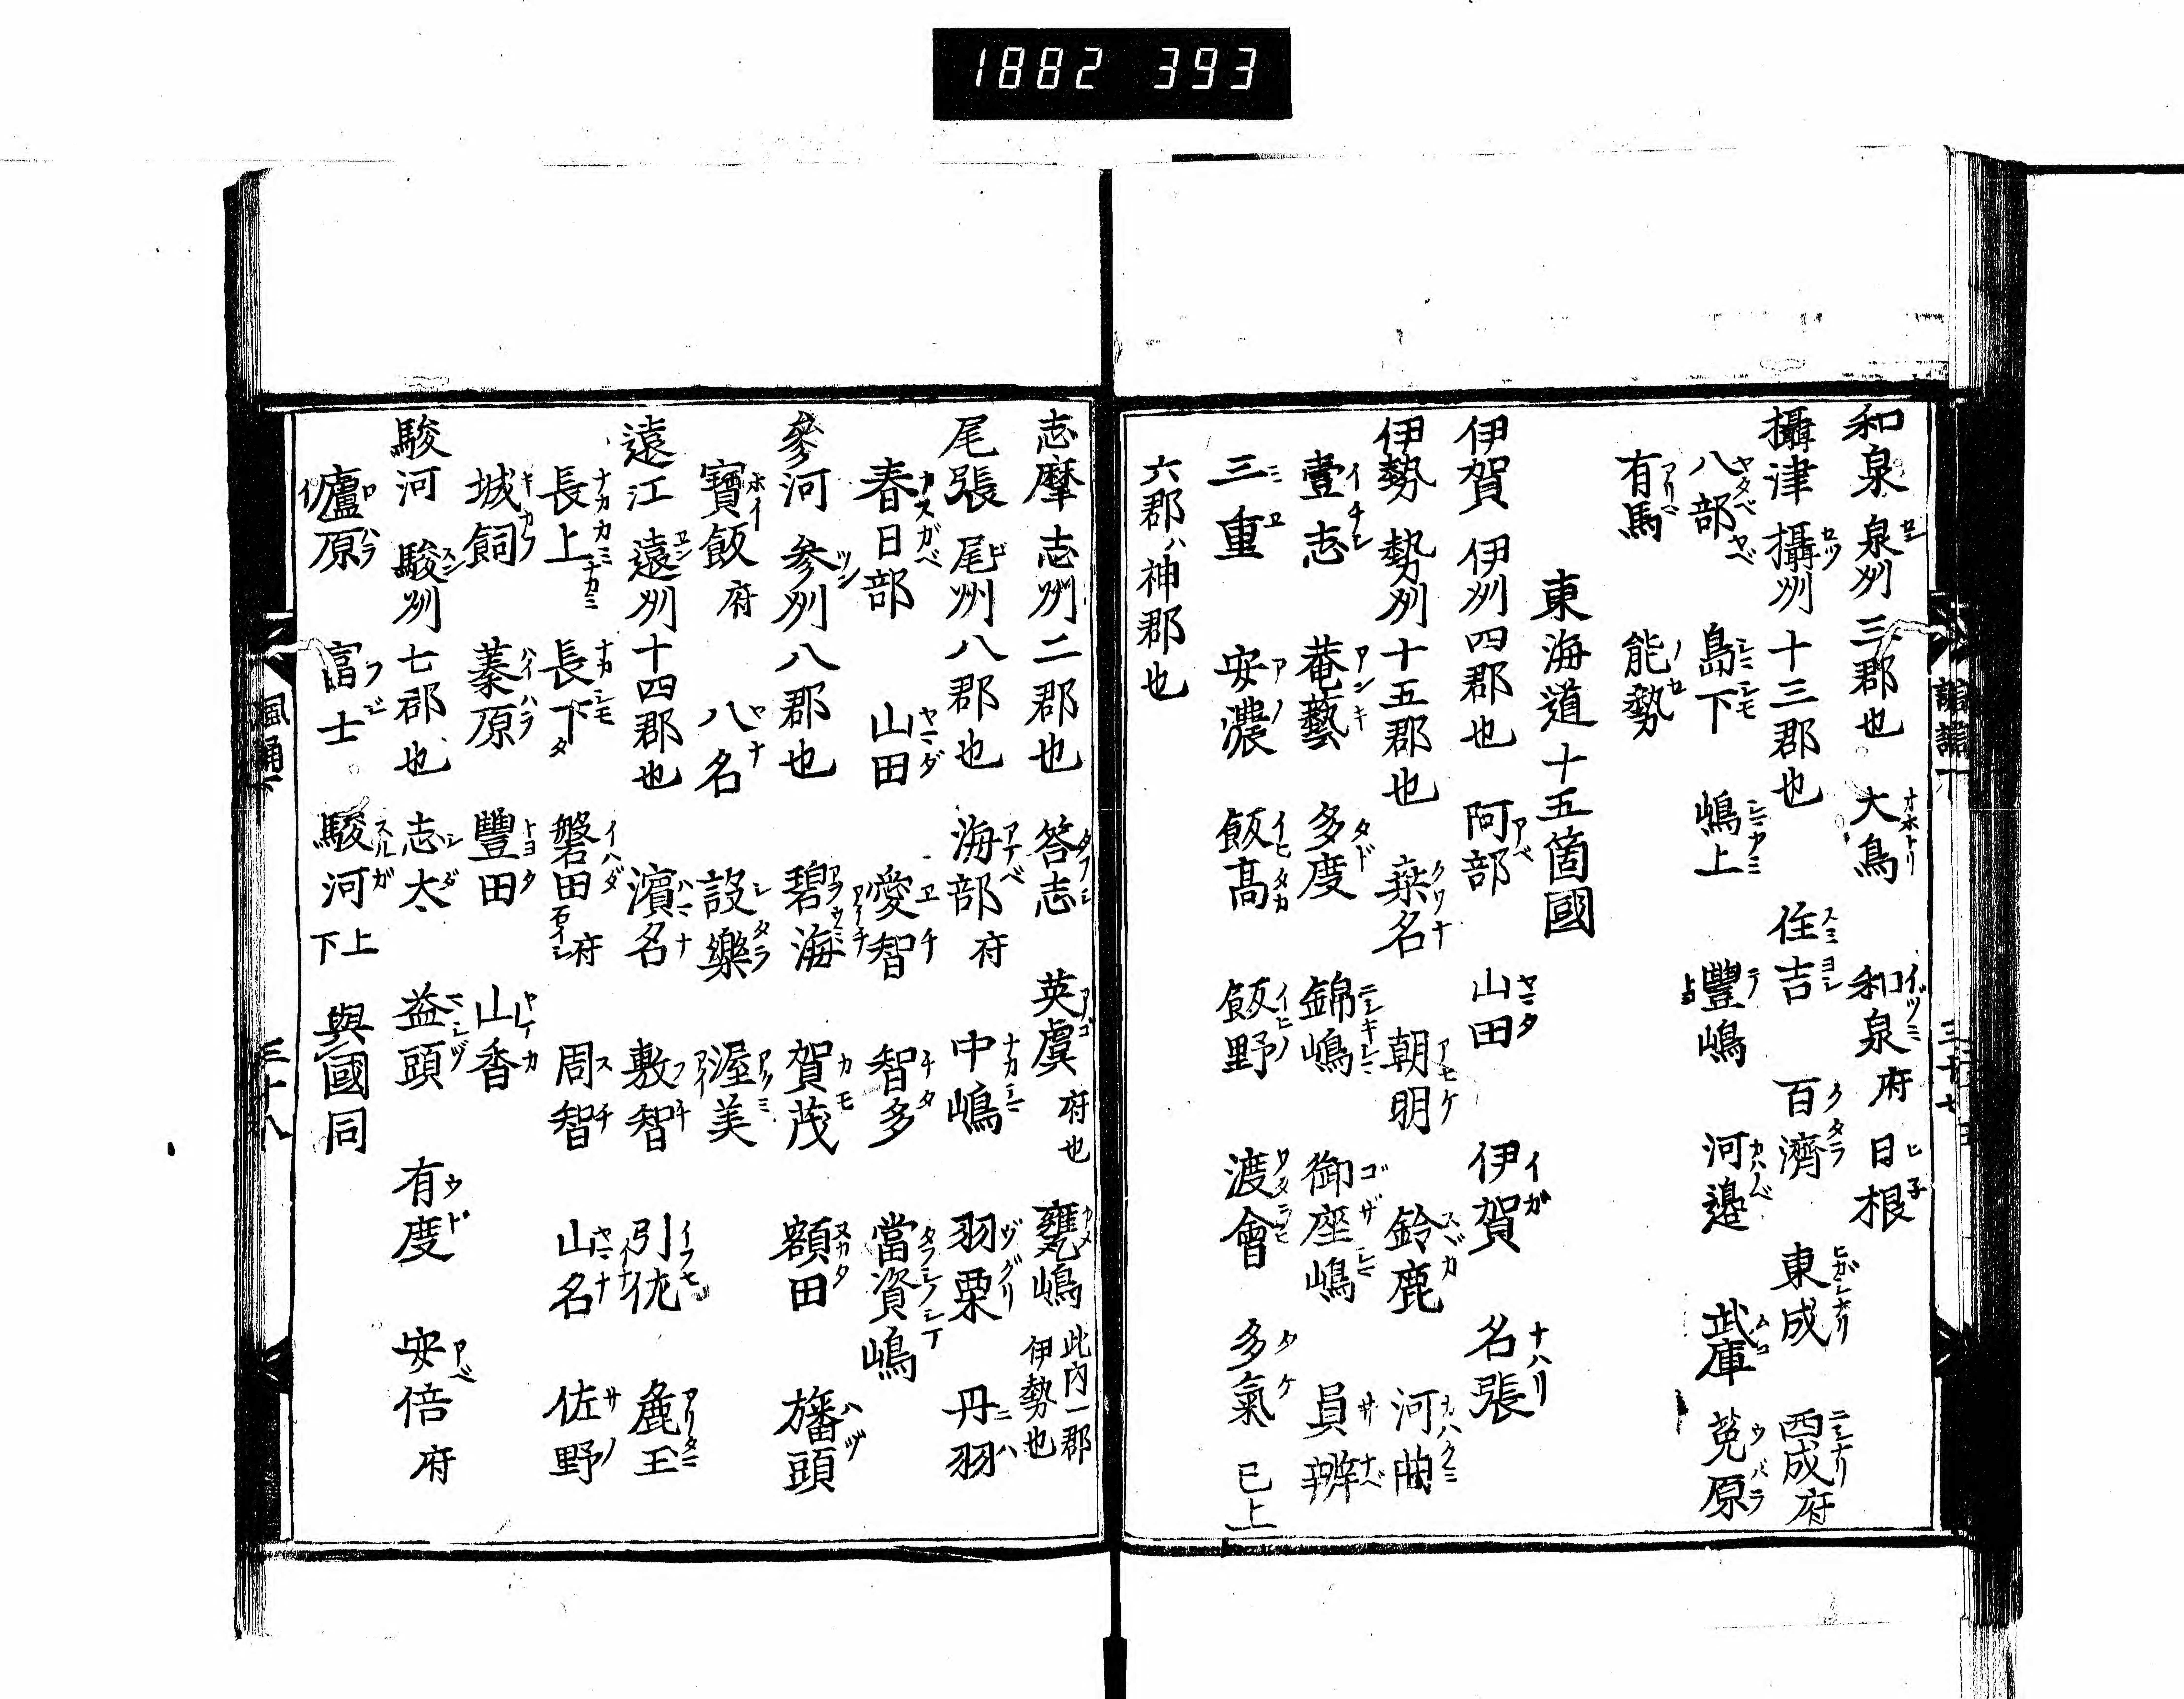 1882 393
和泉 泉州 三郡也 大鳥 和泉 府 日根
攝津 攝州 十三郡也 住吉 百濟 東成 西成 府
八部 島下 嶋上 豐嶋 河邉 武庫 菟原
有馬 能勢
東海道十五箇國
伊賀 伊州 四郡也 阿部 山田 伊賀 名張
伊勢 勢州 十五郡也 桒名 朝明 鈴鹿 河曲
壹志 菴藝 多度 錦嶋 御座嶋 員辨
三重 安濃 飯高 飯野 渡會 多氣 已上
六郡ハ神郡也
三十七
志摩 志州 二郡也 答志 英虞 府也 甕嶋 此内一郡伊勢也
尾張 尾州 八郡也 海部 府 中嶋 羽栗 丹羽
春日部 山田 愛智 智多 當資嶋
參河 参州 八郡也 碧海 賀茂 額田 旛頭
寶飯 府 八名 設樂 渥美
遠江 遠州 十四郡也 濱名 敷智 引佐 麁玉
長上 長下 磐田 府 周智 山名 佐野
城飼 蓁原 豐田 山香
駿河 駿州 七郡也 志太 益頭 有度 安倍 府
廬原 富士 駿河 上下 與國同
三十八